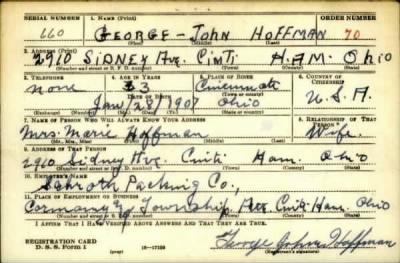 SERIAL NUMBER 1. NAME (Print) ORDER NUMBER
660 GEORGE - JOHN HOFFMAN 70
(First) (Middle) (Last)
2. ADDRESS (Print)
2910 SIDNEY Ave. Cinti HAM. Ohio
(Number and street or R. F. D. number) (Town) (County) (State)
3. TELEPHONE 4. AGE IN YEARS 5. PLACE OF BIRTH 6. COUNTRY OF CITIZENSHIP
none 33 Cincinnati
DATE OF BIRTH
Jan / 28 / 1908 Ohio U.S.A.
(Exchange) (Number) (Mo.) (Day) (Yr.) (State or country)
7. NAME OF PERSON WHO WILL ALWAYS KNOW YOUR ADDRESS 8. RELATIONSHIP OF THAT PERSON
Mrs. Marie Hoffman Wife
(Mr., Mrs., Miss) (First) (Middle) (Last)
9. ADDRESS OF THAT PERSON
2910 Sidney Ave. Cinti Ham. Ohio
(Number and street or R. F. D. number) (Town) (County) (State)
10. EMPLOYER'S NAME
Schroth Packing Co.,
11. PLACE OF EMPLOYMENT OR BUSINESS
Township Ave. Cinti Ham. Ohio
(Number and street or R. F. D. number) (Town) (County) (State)
I AFFIRM THAT I HAVE VERIFIED ABOVE ANSWERS AND THAT THEY ARE TRUE.
REGISTRATION CARD
D. S. S. Form 1 (over) 16-17105 George John Hoffman
(Registrant's signature)